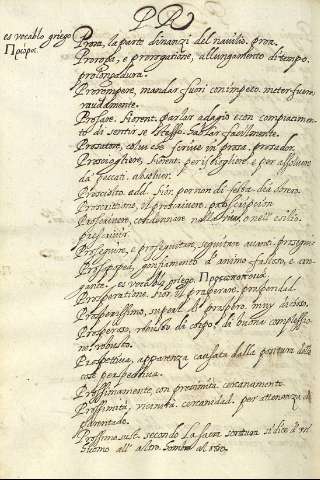 PR
es vocablo griego
Πρώρα.
Prora, la parte dinanzi del navilio. proa.
Proroga, e prorogatione, allungamento di tempo.
prolongadura.
Prorompere, mandar fuori con impeto. meter fuera
raudamente.
Prosare. Fiorent. parlar adagio e con compiacimento
di sentir se stesso. hablar
Prosatore, colui che scrive in prosa. prosador.
Prosciogliere, Fiorent. per isciogliere, e per assolvere
da peccati. absolver.
Prosciolto. add.
Proscrittione, il proscrivere. proscripcion
Proscrivere, condennare nella vita, o nell' esilio.
proscrivir.
Proseguire, e proseguitare, seguitare avanti. prosseguir
Prosopopea, gonfiamento d' animo fastoso, e
es vocablo griego. Προσωποποιία.
Prosperatione. Fior. il prosperare. prosperidad.
Prosperissimo, superl. di prospero. muy dichoso.
Prosperoso, robusto da corpo, di buona complessio
ne. robusto.
Prospettiva, apparenza causata dalla postura delle
cose. perspectiva.
Prossimamente, con prossimità. cercanamente.
Prossimità, vicinità. cercanidad. per attenenza di
parentado.
Prossimo sust. secondo La sacra scrittura si dice d' rel.
all' altro.